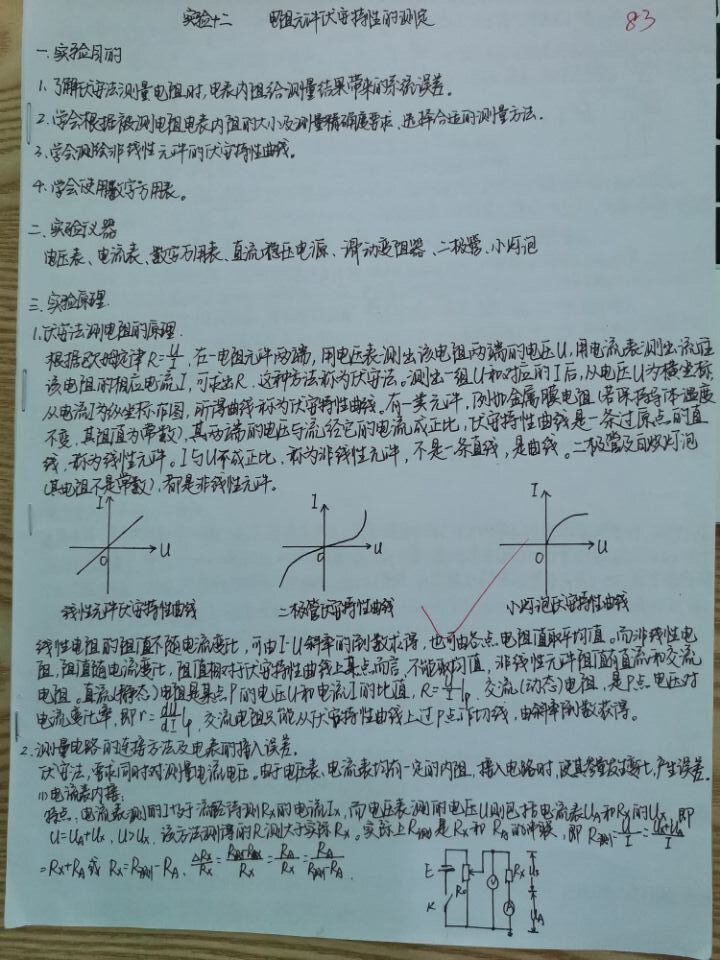 实验十二 电阻元件伏安特性的测定
83
一.实验目的
1.了解伏安法测量电阻时,电表内阻给测量结果带来的系统误差。
2.学会根据被测电阻电表内阻的大小及测量精确度要求、选择合适的测量方法.
3.学会测绘非线性元件的伏安特性曲线。
4.学会使用数字万用表。
二.实验仪器
电压表、电流表、数字万用表、直流稳压电源、滑动变阻器、二极管、小灯泡
三.实验原理
1.伏安法测电阻的原理.
根据欧姆定律R=U/I,在一电阻元件两端,用电压表测出该电阻两端的电压U,用电流表测出流过
该电阻的相应电流I,可求出R,这种方法称为伏安法。测出一组U和对应的I后,从电压U为横坐标
从电流I为纵坐标作图,所得曲线称为伏安特性曲线。有一类元件,例如金属膜电阻(若保持导体温度
不变,其阻值为常数),其两端的电压与流经它的电流成正比,伏安特性曲线是一条过原点的直
线,称为线性元件。I与U不成正比,称为非线性元件,不是一条直线,是曲线。二极管及白炽灯泡
(其电阻不是常数),都是非线性元件。
I U O
I U O
I U O
线性元件伏安特性曲线
二极管伏安特性曲线
小灯泡伏安特性曲线
线性电阻的阻值不随电流变化,可由I-U斜率的倒数求得,也可由各点电阻值取平均值。而非线性电
阻,阻值随电流变化,阻值相对于伏安特性曲线上某点而言,不能取均值,非线性元件阻值有直流和交流
电阻。直流(静态)电阻是某点P的电压U和电流I的比值,R=U/I|p,交流(动态)电阻,是P点电压对
电流变化率,即r=dU/dI|p,交流电阻只能从伏安特性曲线上过P点作切线,由斜率倒数求得。
2.测量电路的连接方法及电表的接入误差。
伏安法,需求同时对测量电流电压。由于电压表、电流表均有一定的内阻,接入电路时,使其参量发生变化,产生误差。
(1)电流表内接:
特点:电流表测的I等于流经待测Rx的电流Ix,而电压表测的电压U则包括电流表UA和Rx的Ux,即
U=UA+Ux,U>Ux,该方法测得的R测大于实际Rx。实际上R测是Rx和RA的串联,即R测=U/I=(Ux+UA)/I
=Rx+RA 或 Rx=R测-RA、ΔRx/Rx=(R测-Rx)/Rx=RA/Rx=RA/(R测-RA).
E K R0 V Rx A Ux UA